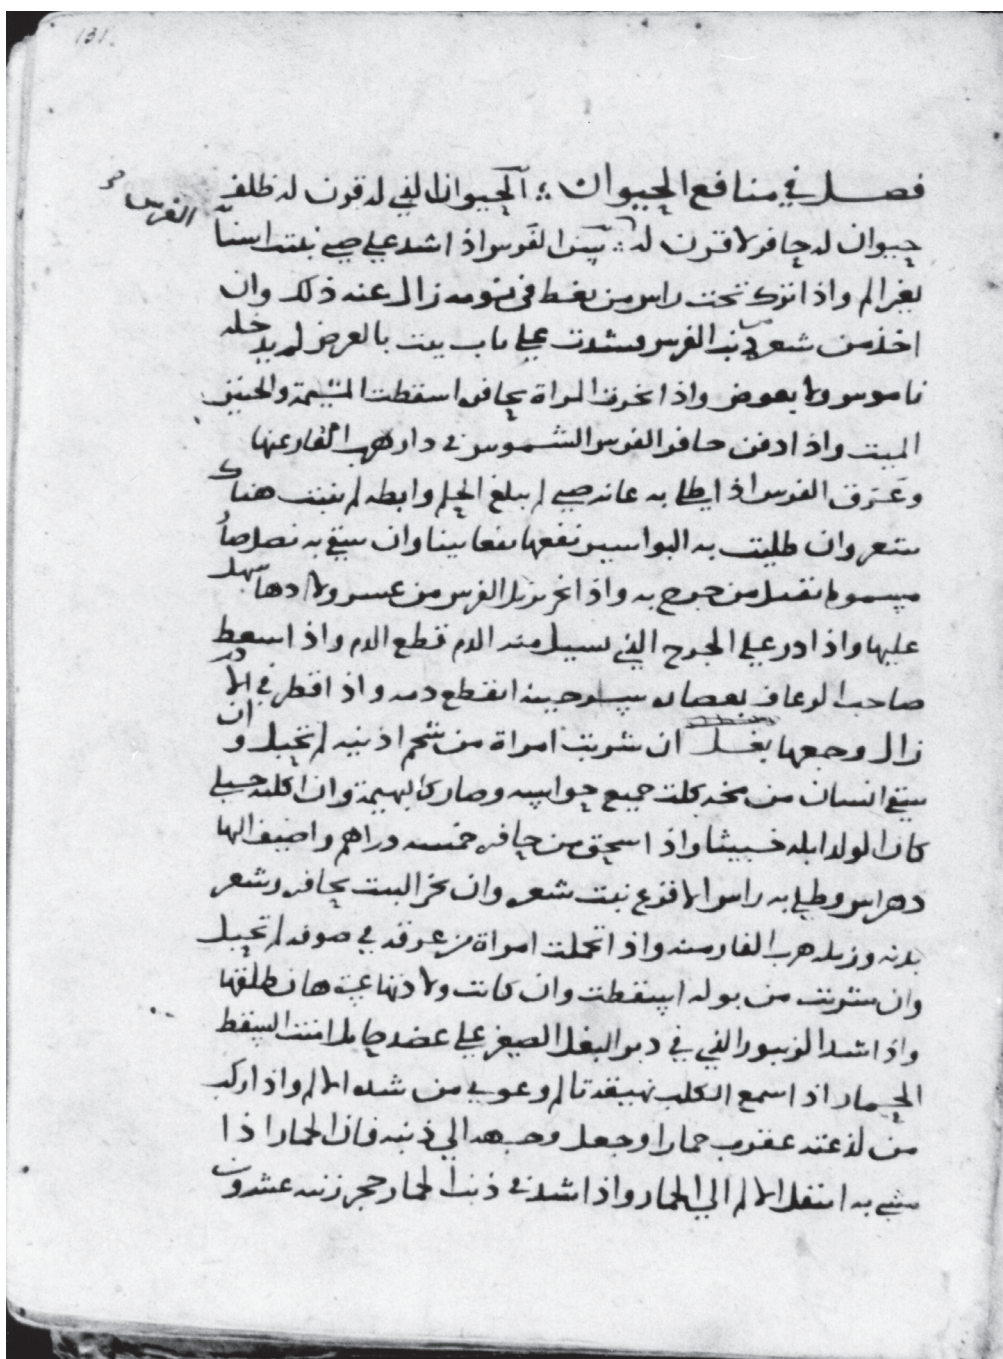 131
فصل في منافع الحيوان ؞ الحيوان الذي له قرون له ظلف
الفرس
حيوان له حافر لا قرن له ؞ سن الفرس اذا شد علي صبي نبتت اسنانه
بغير الم واذا ترك تحت راس من يغط في نومه زال عنه ذلك وان
اخذ من شعر ذنب الفرس وشدت علي باب بيت بالعرض لم يدخله
ناموس ولا بعوض واذا بخرت المراة بحافره اسقطت المشيمة والجنين
الميت واذا دفن حافر الفرس الشموس في دار هرب الفار عنها
وعرق الفرس اذا طلي به عانه صبي لم يبلغ الحلم وابطه لم ينبت هناك
شعر وان طليت به البواسير نفعها نفعا بينا وان سقي به نصل صار
مسموما يقتل من جرح به واذا بخر بزبل الفرس من عسر ولادها سهل
عليها واذا ذر علي الجرح الذي يسيل منه الدم قطع الدم واذا سعط
صاحب الرعاف بعصاره حينه انقطع دمه واذا قطر في الاذن
زال وجعها بغل ان شربت امراة من شحم اذنيه لم تحبل وان
سقي انسان من مخه كلت جميع حواسه وصار كالبهيمة وان اكلته حبلي
كان الولد ابله خبيثا واذا سحق من حافره خمسه دراهم واضيف اليها
دهن اس وطلي به راس الاقرع نبت شعره وان بخر البيت بحافره وشعر
بدنه وزبله هرب الفار منه واذا تحملت امراة من عرقه في صوفه لم تحبل
وان شربت من بوله اسقطت وان كانت ولادتها عسرة هان طلقها
واذا شد الزنبور الذي في دبر البغل الصغير علي عضد حامل امنت السقط
الحمار اذا سمع الكلب نهيقه تالم وعوي من شده الالم واذا ركب
من لذعته عقرب حمارا وجعل وجهه الي ذنبه فان الحمار اذا
مشي به انتقل الالم الي الحمار واذا شد في ذنب الحمار حجر زنته عشرون